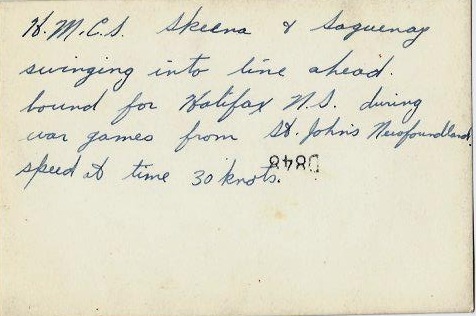 H.M.C.S. Skeena & Saguenay
swinging into line ahead.
bound for Halifax N.S. during
war games from St. John's Newfoundland.
speed at time 30 knots.
D848